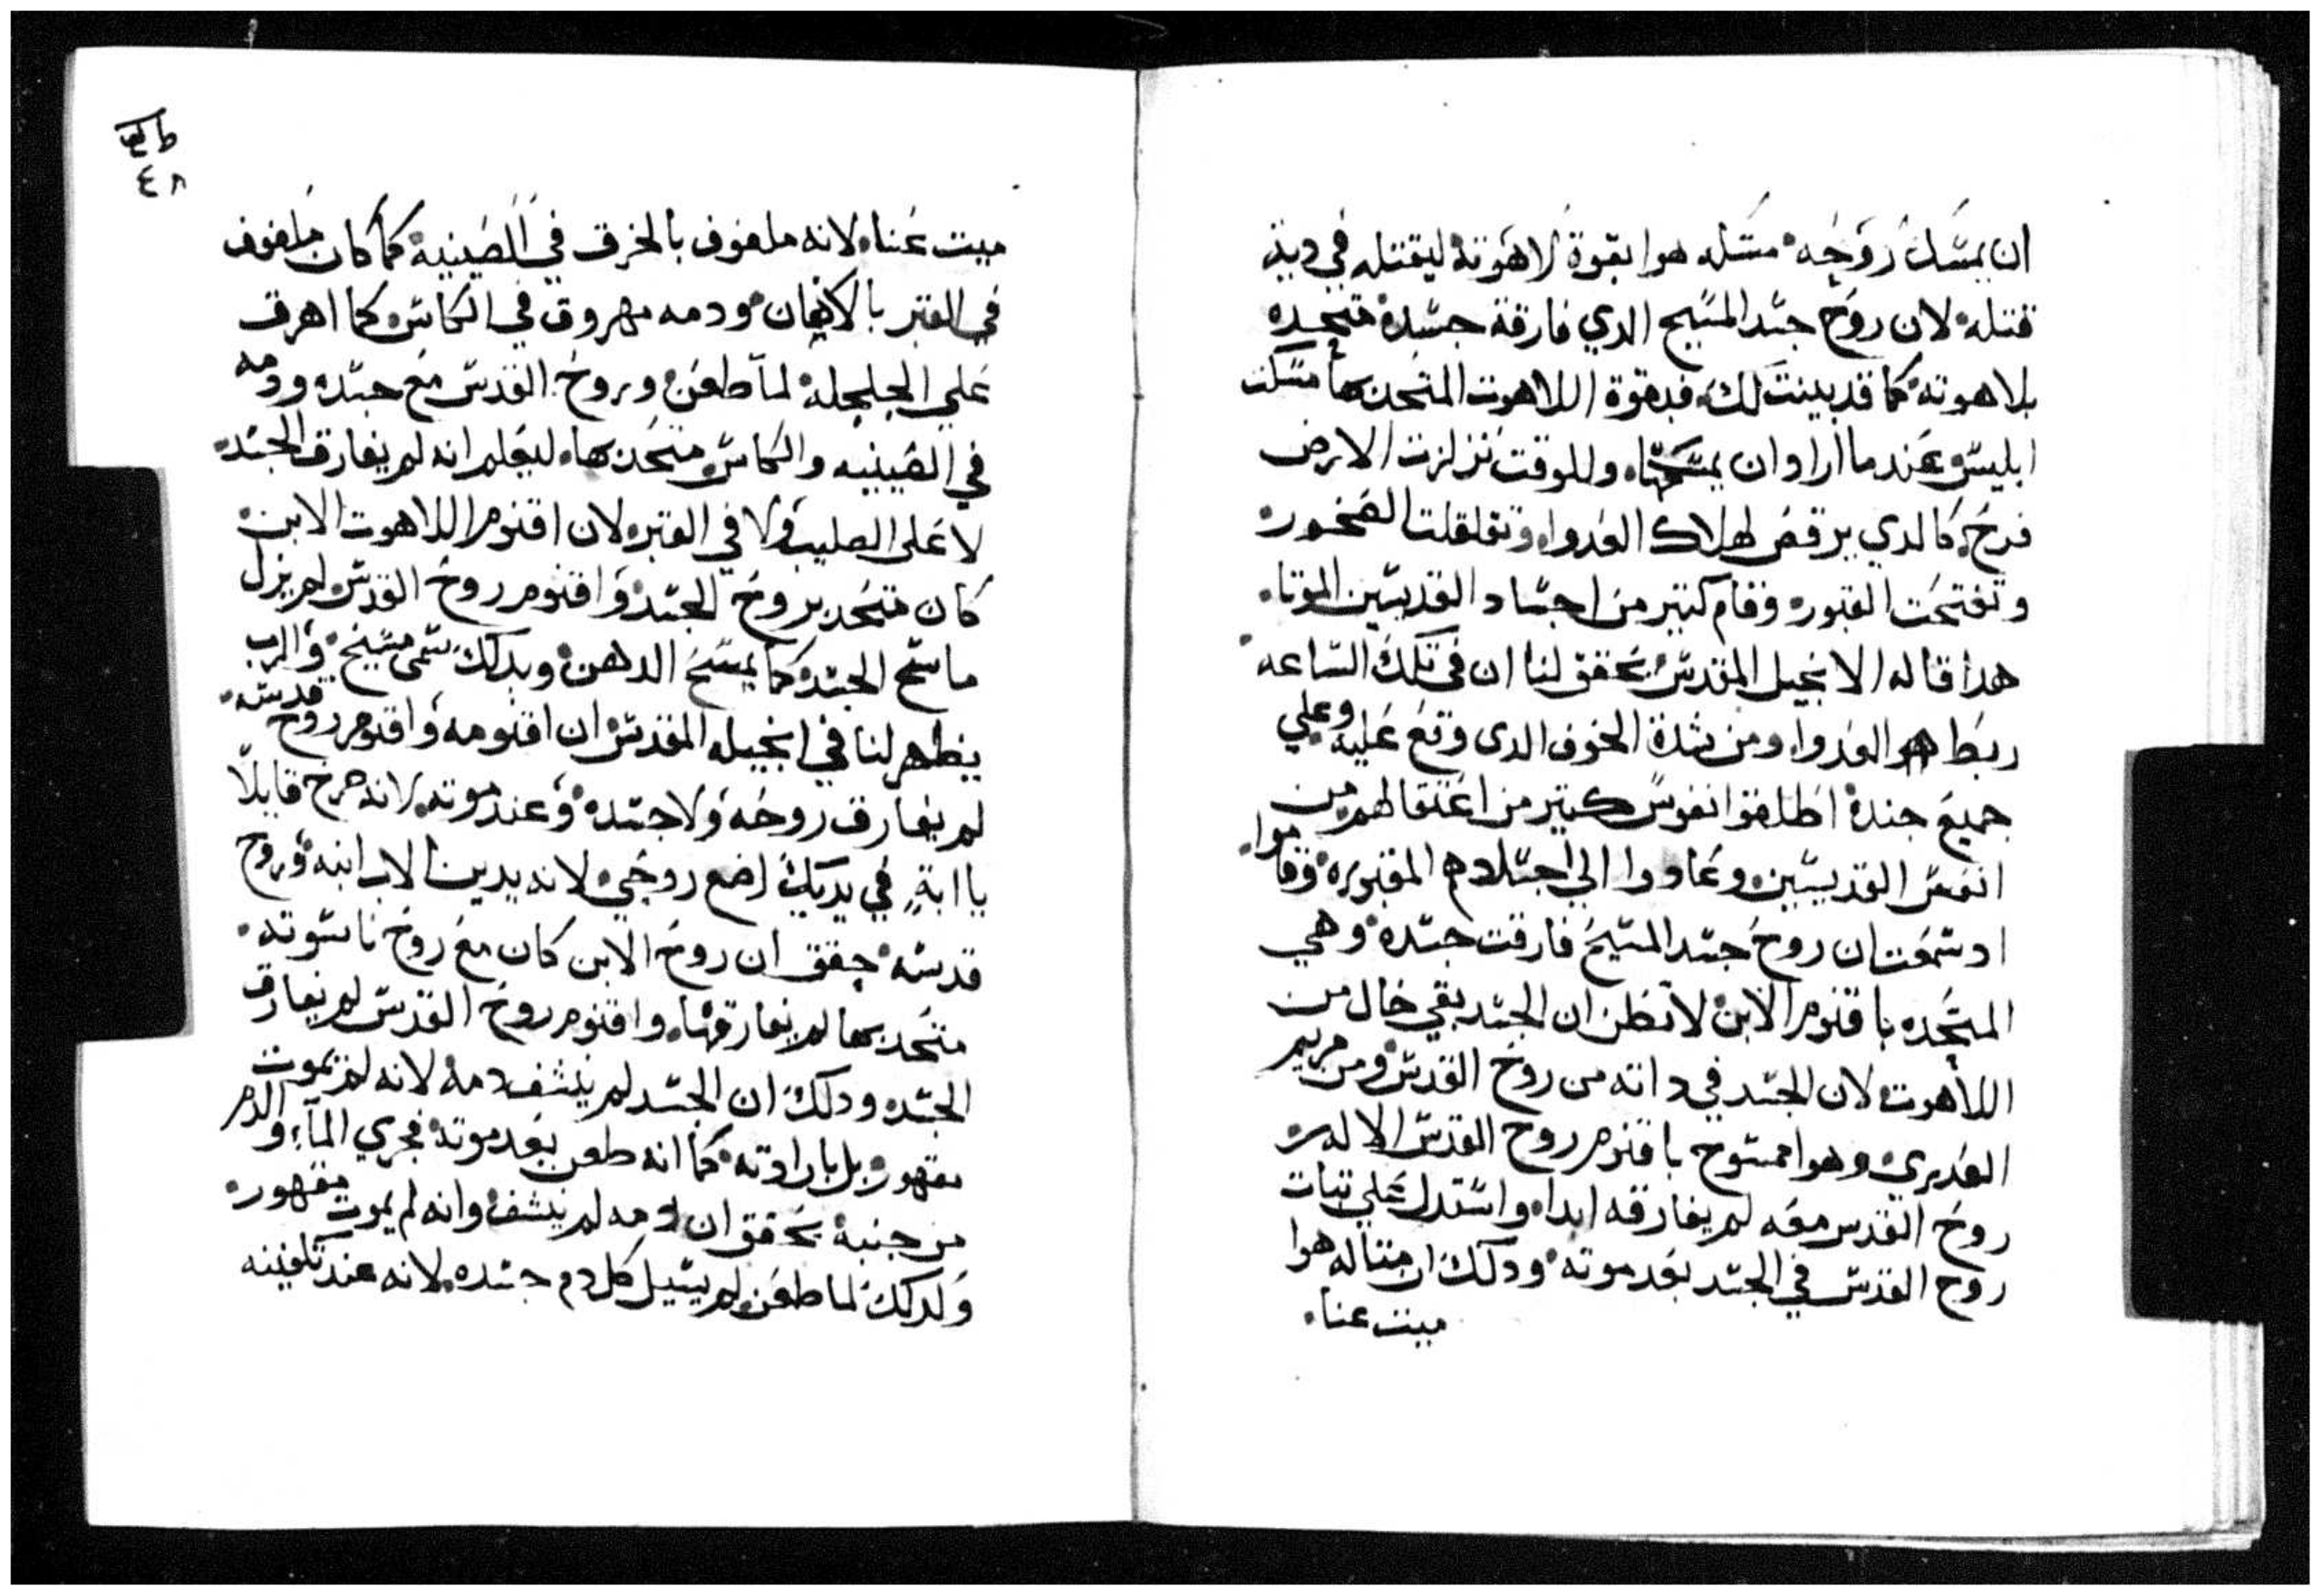 ان يمسك روحه مسكه هوا بقوة لاهوته ليقتله في دية
قتله لان روح جسد المسيح الدي فارقة جسده متحده
بلاهوته كما قد بينت لك فبقوة اللاهوت المتحد بها مسكت
ابليس عندما اراد ان يمسكها وللوقت تزلزت الارض
فرح كالدي يرقص لهلاك العدوا وتقلقلت الصخور
وتفتحت القبور وقام كتير من اجساد القديسين الموتا
هدا قاله الانجيل المقدس يحقق لنا ان في تلك الساعه
ربط العدوا ومن شدة الخوف الدى وقع عليه وعلي
جميع جندة اطلقوا نفوس كتير من اعتقالهم من
انفس القديسين وعادوا الي اجسادهم المقبوره وقاموا
اد سمعت ان روح جسد المسيح فارقت جسده وهي
المتحده باقنوم الابن لا تظن ان الجسد بقي خال من
اللاهوت لان الجسد في داته من روح القدس ومن مريم
العدري وهوا ممسوح باقنوم روح القدس الاله
روح القدس معه لم يفارقه ابدا واستدل علي تبات
روح القدس في الجسد بعد موته ودلك ان متاله هوا
ميت عنا
٤٨
ميت عنا لانه ملفوف بالخرق في الصينية كما كان ملفوف
في القبر بالاكفان ودمه مهروق في الكاس كما اهرق
علي الجلجلة لما طعن وروح القدس مع جسده ودمه
في الصينيه والكاس متحد بها ليعلم انه لم يفارق الجسد
لا على الصليب ولا في القبر لان اقنوم اللاهوت الابن
كان متحد بروح الجسد واقنوم روح القدس لم يزل
ماسح الجسد كما يمسح الدهن وبدلك تسمى مسيح والرب
يظهر لنا في انجيله المقدس ان اقنومه واقنوم روح قدسه
لم يفارق روحه ولا جسده وعند موته لانه صرخ قايلا
يا ابة في يديك اضع روحي لانه يدين الاب ابنه وروح
قدسه حقق ان روح الابن كان مع روح ناسوته
متحد بها لم يفارقها واقنوم روح القدس لم يفارق
الجسد ودلك ان الجسد لم ينشف دمه لانه لم يموت
مقهور بل بارادته كما انه طعن بعد موته فجري المآء والدم
من جنبة يحقق ان دمه لم ينشف وانه لم يموت مقهور
ولدلك لما طعن لم يسيل كل دم جسده لانه عند تكفينه